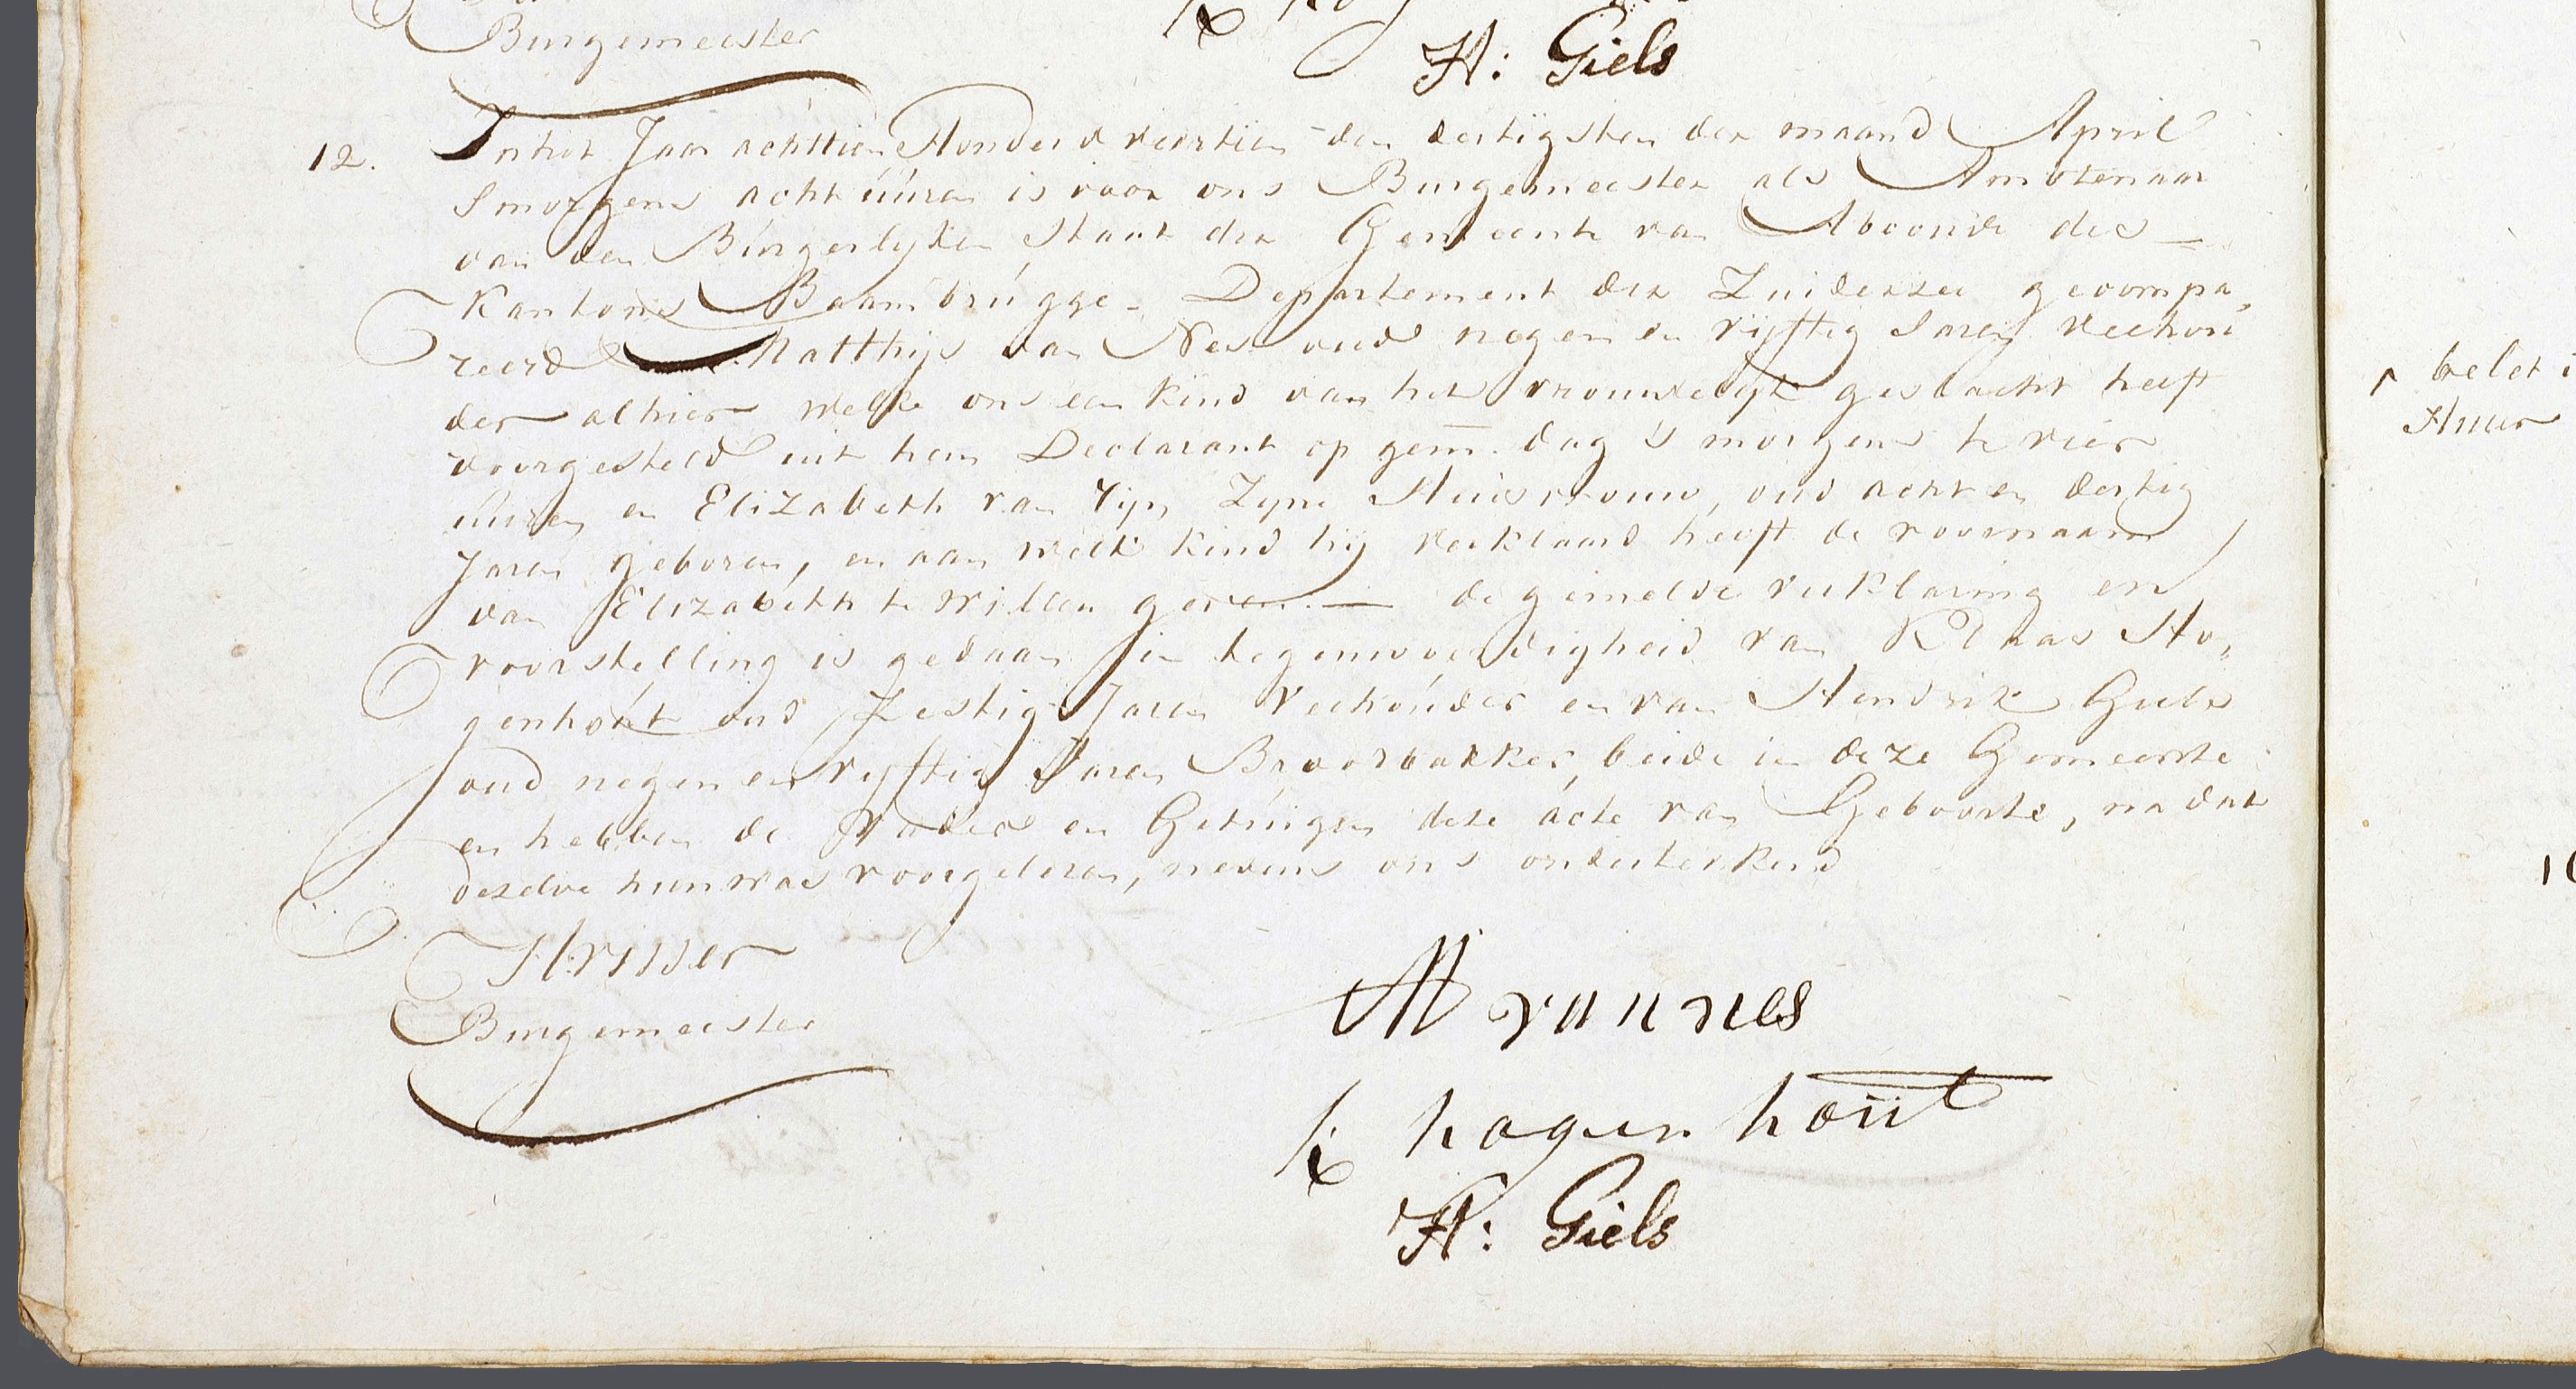 Burgemeester
H: Giels
12. In het Jaar achttien Honderd veertien den dertigsten der maand April
Smorgens acht úúren is voor ons Burgemeester als Ambtenaar
van den Búrgerlyken Staat der Gemeente van Abcoude des
Kantons Baambrúgge - Departement der Zuiderzee gecompa„
reerd Matthijs van Nes oud negen en vijftig Jaren Veehou
der alhier welke ons een kind van het vrouwelijk geslacht heeft
voorgesteld uit hem Declarant op gem. dag 's morgens te vier
úúren en Elizabeth van Rijn Zyne Huisvrouw, oud acht en dertig
Jaren geboren, en aan welk kind hij verklaard heeft de voornaam
van Elizabeth te willen geven. — de gemelde verklaring en
voorstelling is gedaan in tegenwoordigheid van Klaas Ho„
genhout oud Zestig Jaren Veehoúder en van Hendrik Giels
oud negen en vyftig Jaren Broodbakker, beide in deze Gemeente
en hebben de Vader en Getúigen deze acte van Geboorte, na dat
dezelve hun was voorgelezen, nevens ons onderteekend
HVisser
Burgemeester
M van nes
K hogen hout
H: Giels
belet
Huur